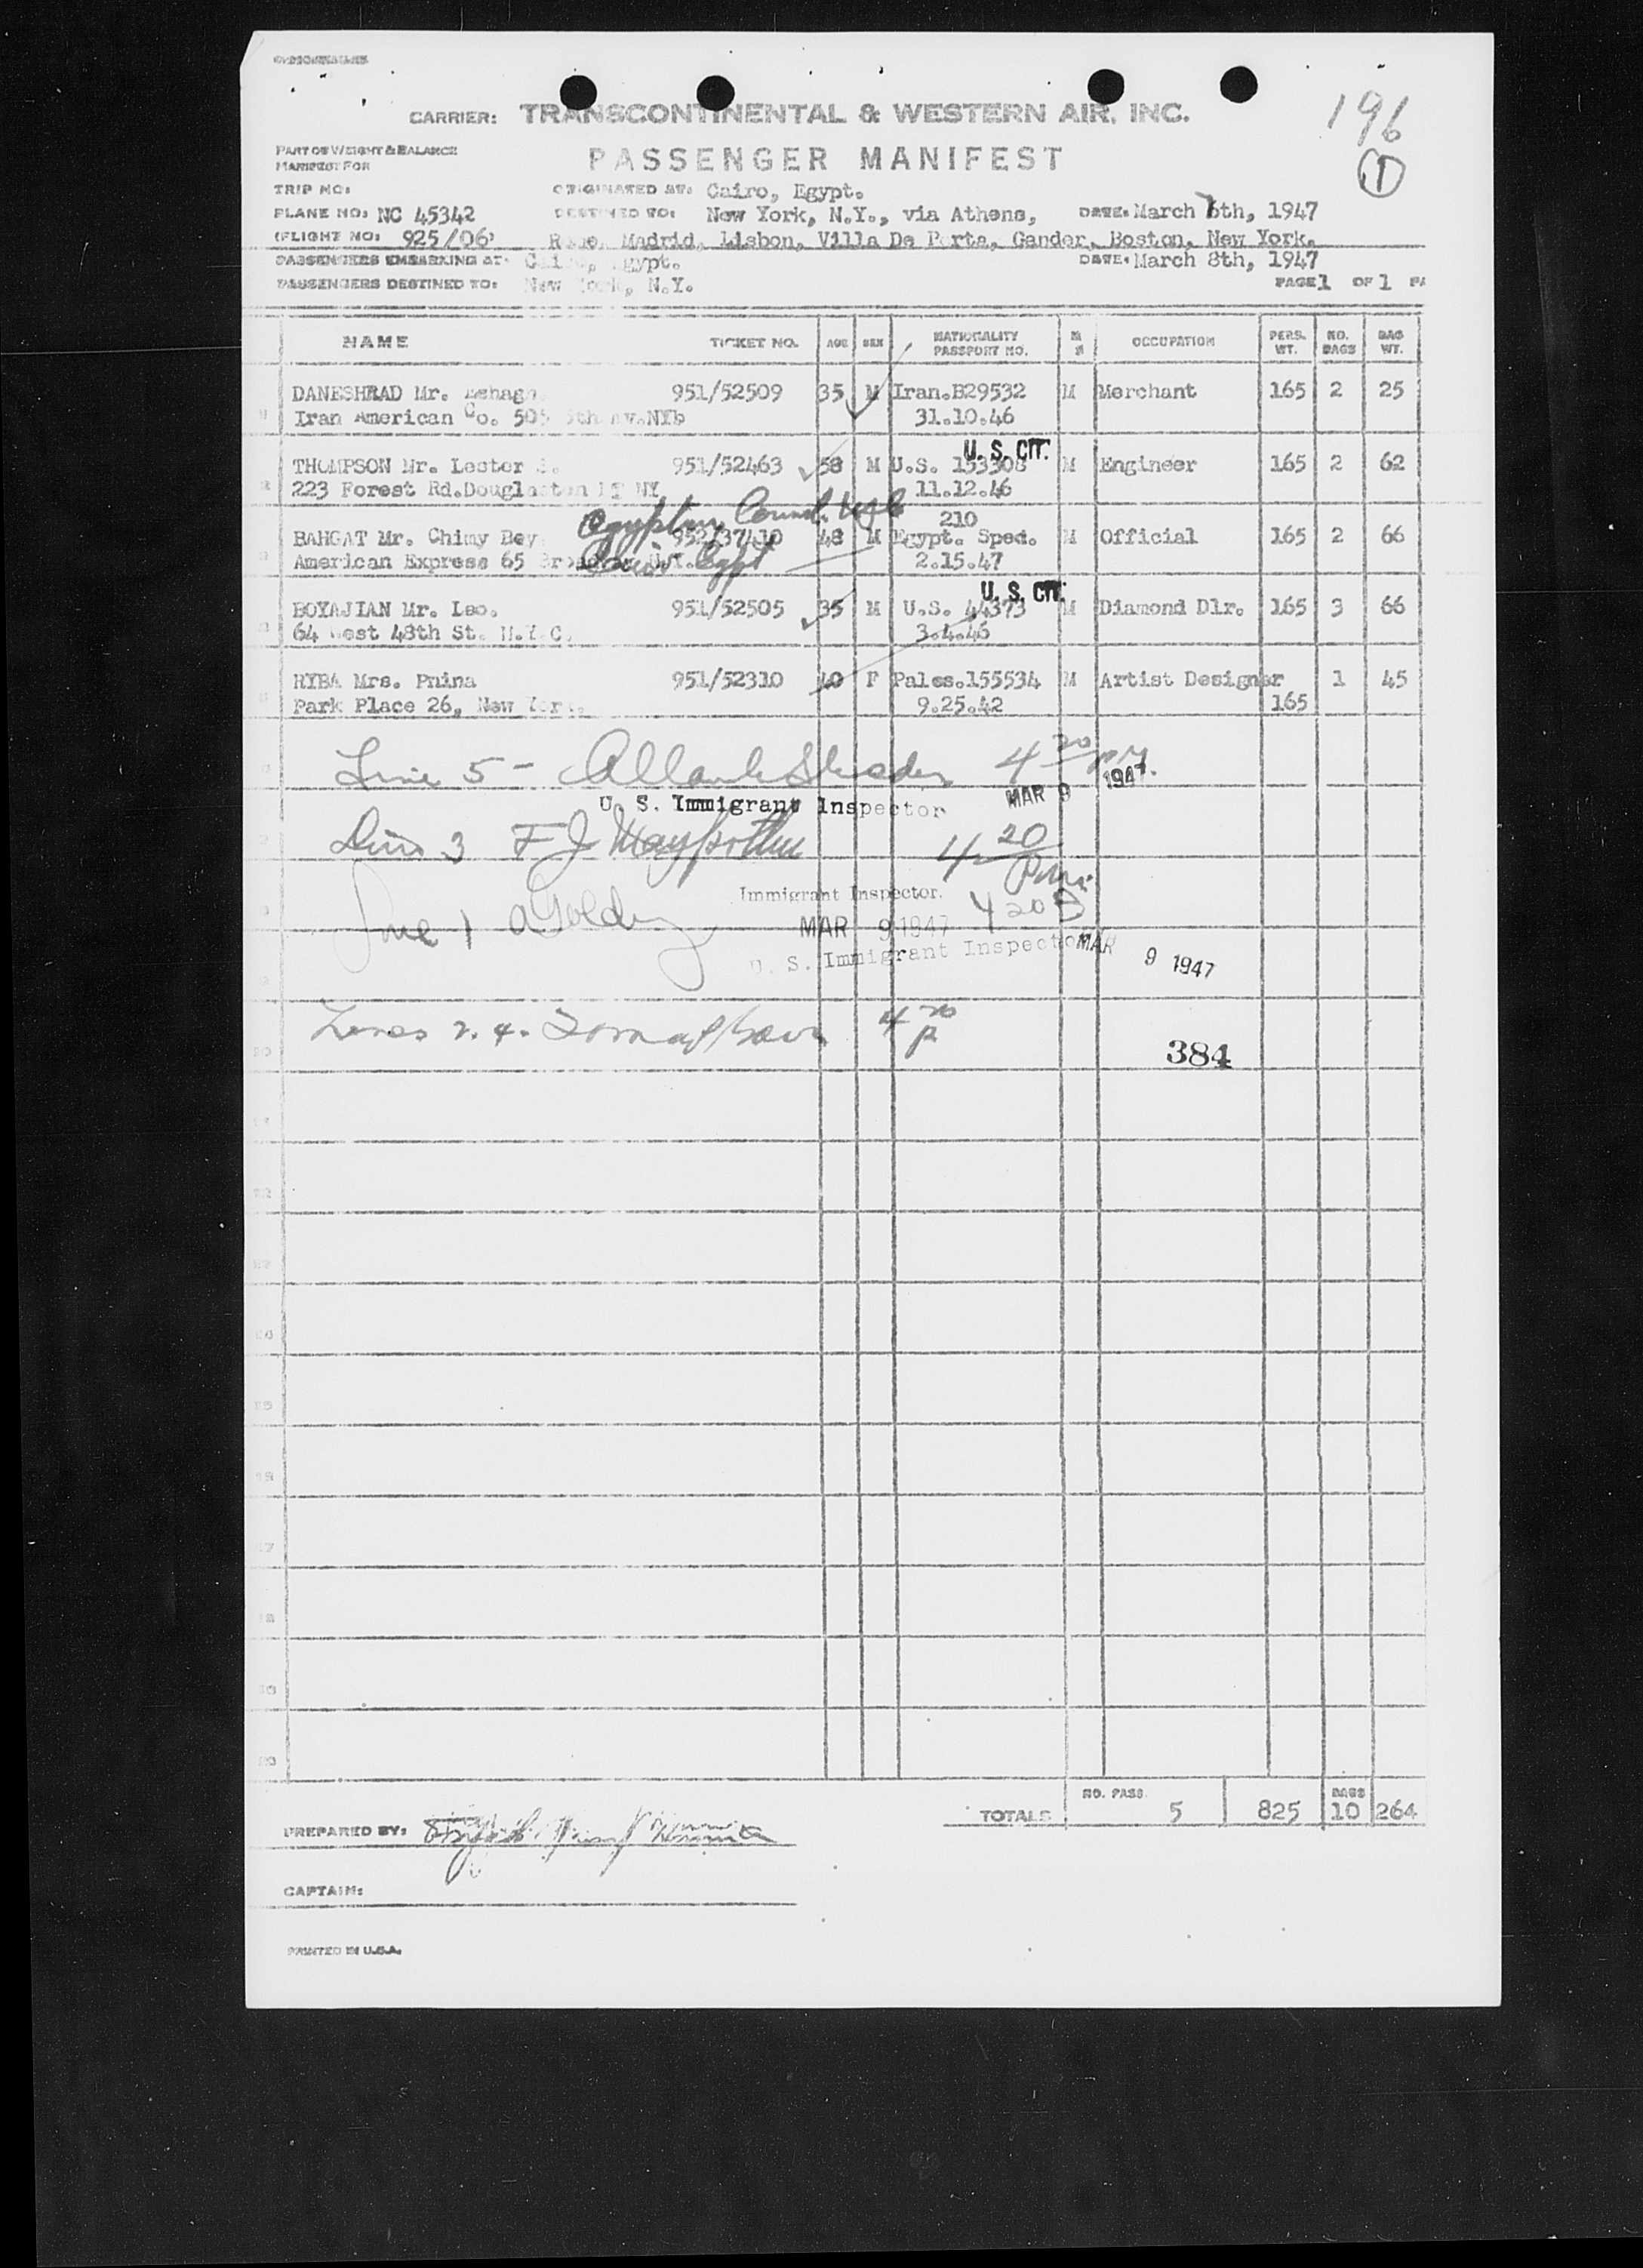 196
1
CARRIER: TRANSCONTINENTAL & WESTERN AIR, INC.
PART OF WEIGHT & BALANCE
MANIFEST FOR
PASSENGER MANIFEST
TRIP NO:
ORIGINATED AT: Cairo, Egypt.
PLANE NO: NC 45342
DESTINED TO: New York, N.Y., via Athens, DATE: March 7th, 1947
(FLIGHT NO: 925/06) Rome, Madrid, Lisbon, Villa De Porta, Gander, Boston, New York.
PASSENGERS EMBARKING AT: Cairo, Egypt. DATE: March 8th, 1947
PASSENGERS DESTINED TO: New York, N.Y. PAGE 1 OF 1
NAME TICKET NO. AGE SEX NATIONALITY PASSPORT NO. OCCUPATION PERS. WT. NO. BAGS BAG WT.
DANESHRAD Mr. 951/52509 35 M Iran.B29532 M Merchant 165 2 25
Iran American Co. 505 5th Av.NYb 31.10.46
U. S. CIT.
THOMPSON Mr. Lester 951/52463 58 M U.S. 153308 M Engineer 165 2 62
223 Forest Rd.Douglaston NY 11.12.46
Egyptian 210
BAHGAT Mr. Chimy Bey 952/37410 48 M Egypt. Sped. M Official 165 2 66
American Express 65 Broadway N.Y. Cairo Egypt 2.15.47
U. S. CIT.
BOYAJIAN Mr. Leo. 951/52505 35 M U.S. 44373 M Diamond Dlr. 165 3 66
64 West 48th St. N.Y.C. 3.4.46
RYBA Mrs. Pnina 951/52310 40 F Pales.155534 M Artist Designer 1 45
Park Place 26, New York. 9.25.42 165
Line 5 - 4 20 PM
U. S. Immigrant Inspector MAR 9 1947
Line 3 F J 4 20 Pm.
Immigrant Inspector.
Line 1 A Golden 4 20 P
MAR 9 1947
U. S. Immigrant Inspector MAR 9 1947
Lines 2. 4. 4 20 P
384
NO. PASS. BAGS
TOTALS 5 825 10 264
PREPARED BY:
CAPTAIN:
PRINTED IN U.S.A.